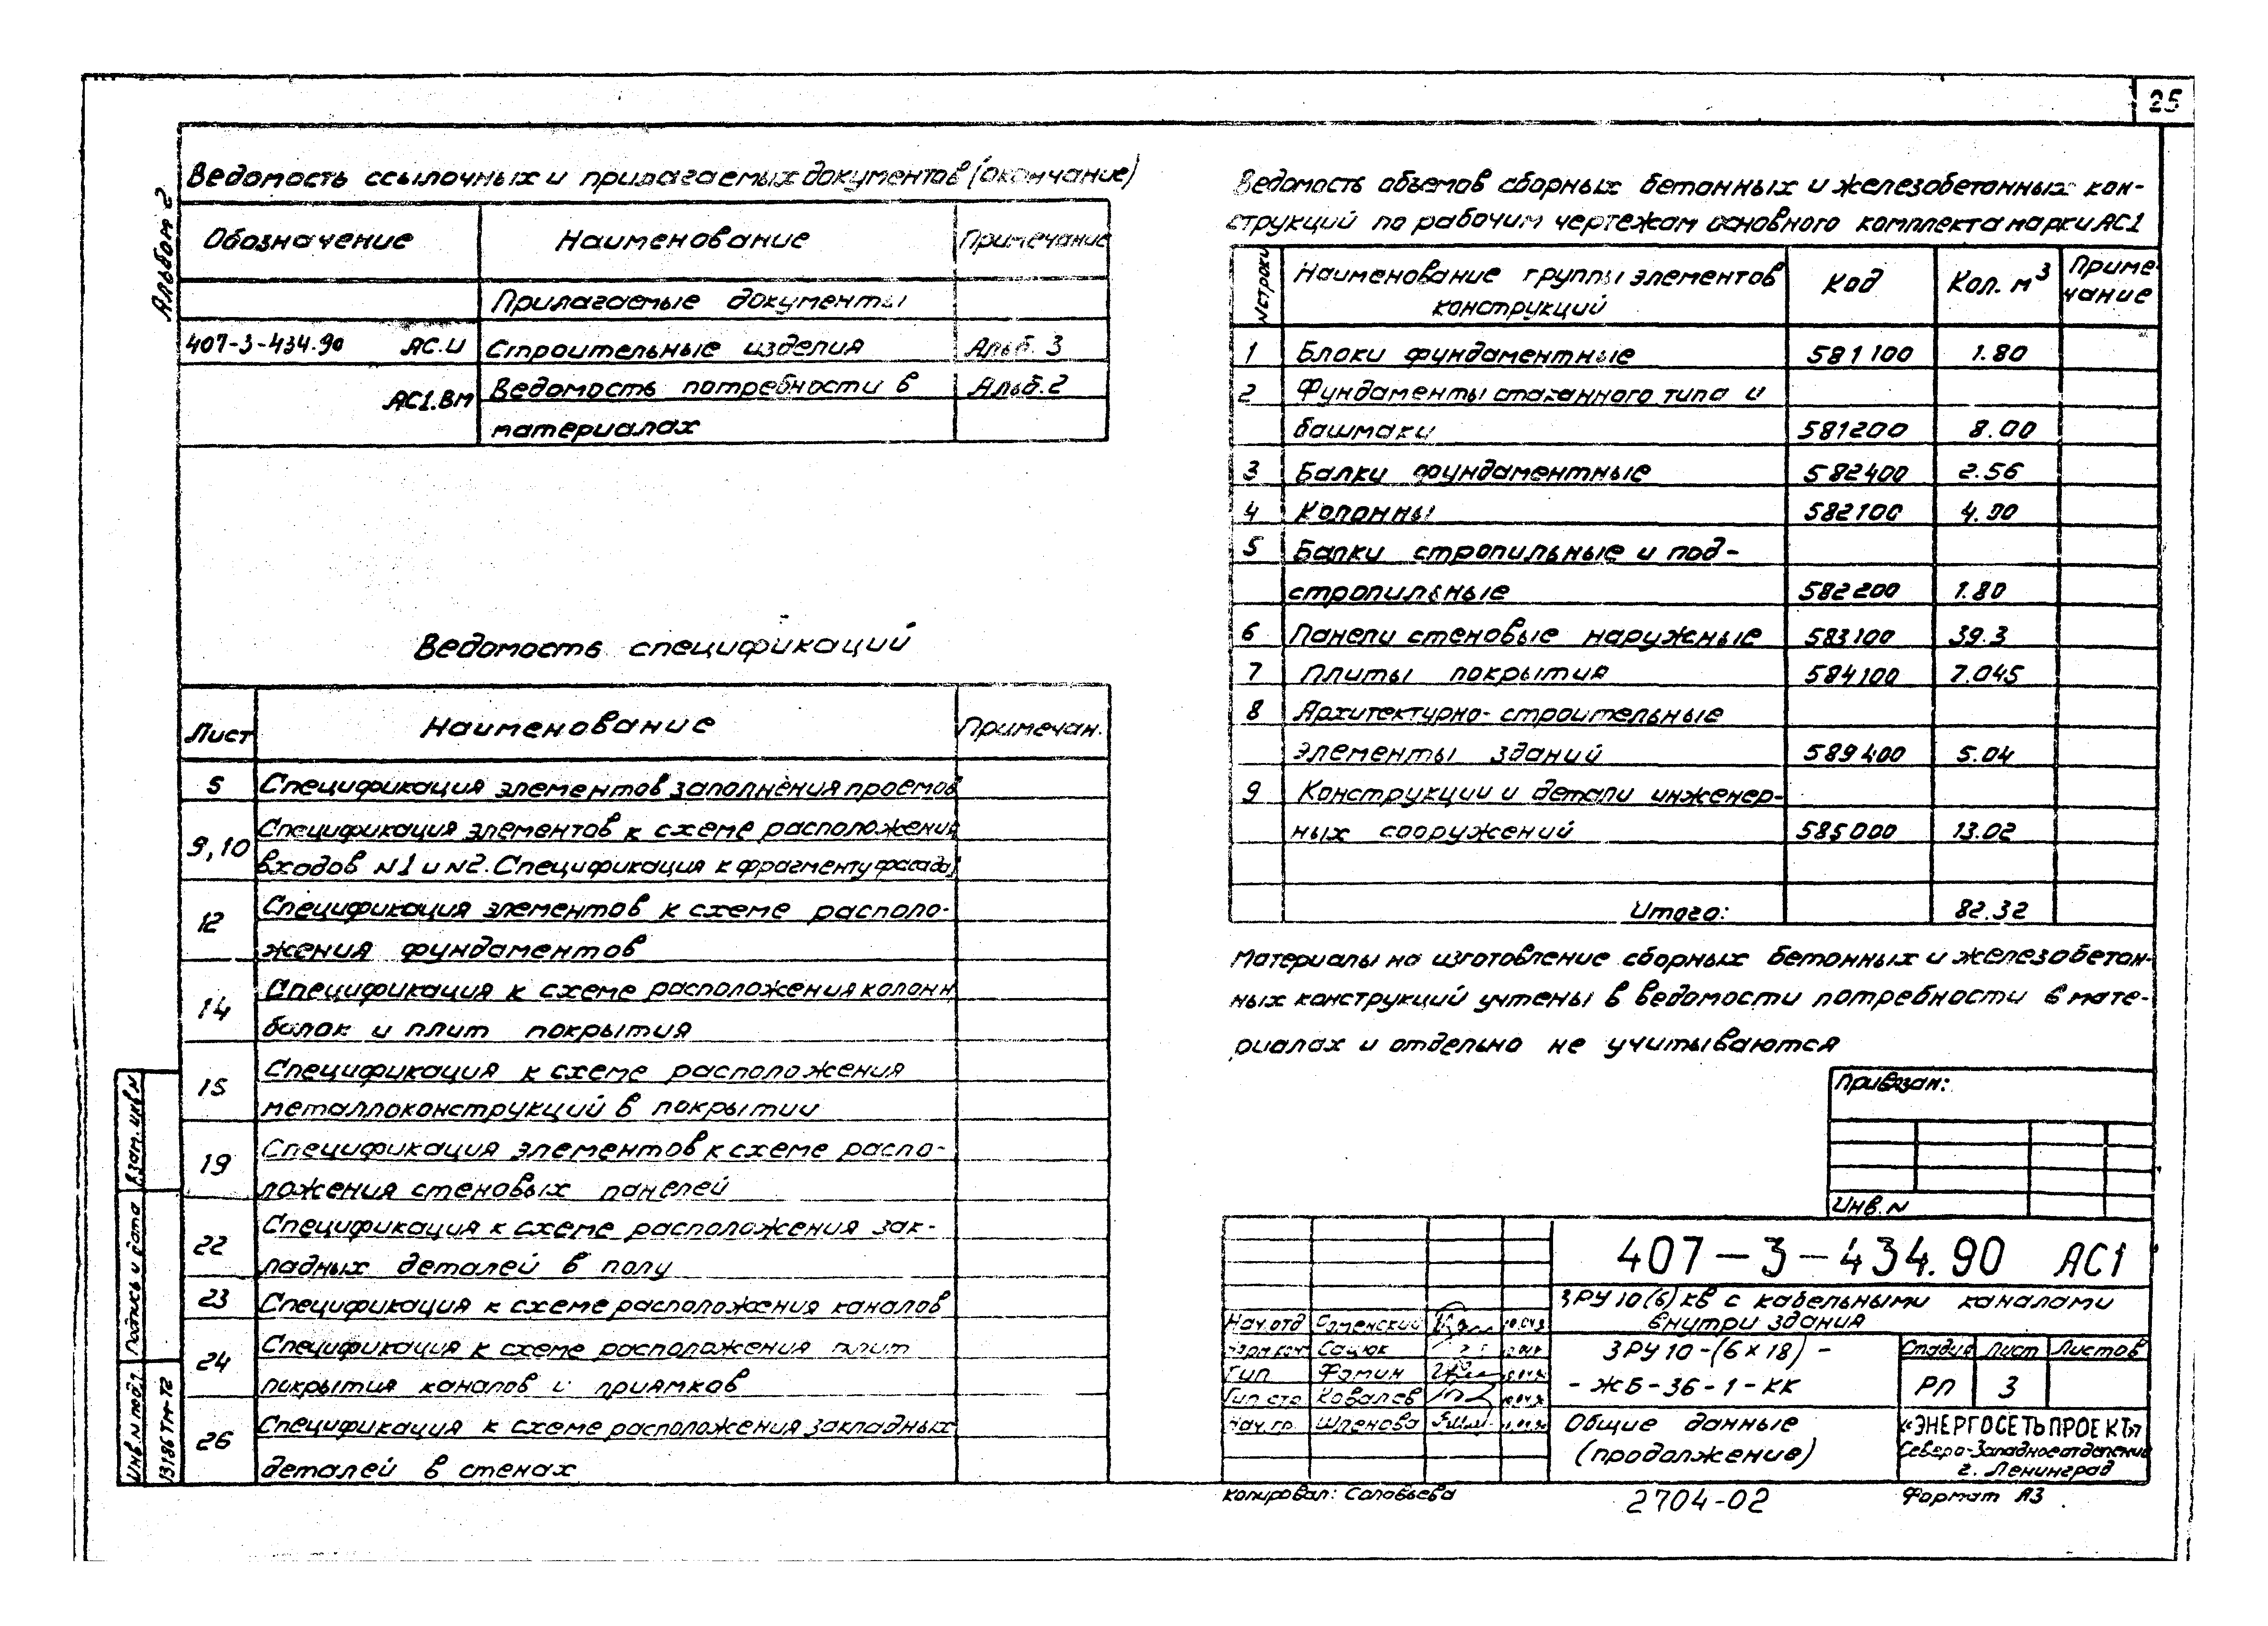 25
Альбом 2
Ведомость ссылочных и прилагаемых документов (окончание)
Обозначение Наименование Примечание
Прилагаемые документы
407-3-434.90 АС.И Строительные изделия Альб. 3
АС1.ВМ Ведомость потребности в Альб. 2
материалах
Ведомость спецификаций
Лист Наименование Примечан.
5 Спецификация элементов заполнения проемов
9,10 Спецификация элементов к схеме расположения
входов N1 и N2. Спецификация к фрагменту фасада
12 Спецификация элементов к схеме располо-
жения фундаментов
14 Спецификация к схеме расположения колонн
балок и плит покрытия
15 Спецификация к схеме расположения
металлоконструкций в покрытии
19 Спецификация элементов к схеме распо-
ложения стеновых панелей
22 Спецификация к схеме расположения зак-
ладных деталей в полу
23 Спецификация к схеме расположения каналов
24 Спецификация к схеме расположения плит
покрытия каналов и приямков
26 Спецификация к схеме расположения закладных
деталей в стенах
Ведомость объемов сборных бетонных и железобетонных кон-
струкций по рабочим чертежам основного комплекта марки АС1
N строки Наименование группы элементов Код Кол. м³ Приме-
конструкций чание
1 Блоки фундаментные 581100 1.80
2 Фундаменты стаканного типа и
башмаки 581200 8.00
3 Балки фундаментные 582400 2.56
4 Колонны 582100 4.00
5 Балки стропильные и под-
стропильные 582200 1.80
6 Панели стеновые наружные 583100 39.3
7 Плиты покрытия 584100 7.045
8 Архитектурно-строительные
элементы зданий 589400 5.04
9 Конструкции и детали инженер-
ных сооружений 585000 13.02
Итого: 82.32
Материалы на изготовление сборных бетонных и железобетон-
ных конструкций учтены в ведомости потребности в мате-
риалах и отдельно не учитываются
Привязан:
Инв. N
407-3-434.90 АС1
ЗРУ 10(6) кв с кабельными каналами
внутри здания
Нач. отд
Сацюк
ГИП Фомин
Гип стр Ковалев
Нач. гр. Шленова
ЗРУ 10-(6×18)-
-ЖБ-36-1-КК
Стадия Лист Листов
РП 3
Общие данные
(продолжение)
«ЭНЕРГОСЕТЬПРОЕКТ»
Северо-Западное отделение
г. Ленинград
Копировал: Соловьева
2704-02
Формат А3
Взам. инв. N
Подпись и дата
Инв. N подл.
13186ТМ-Т2